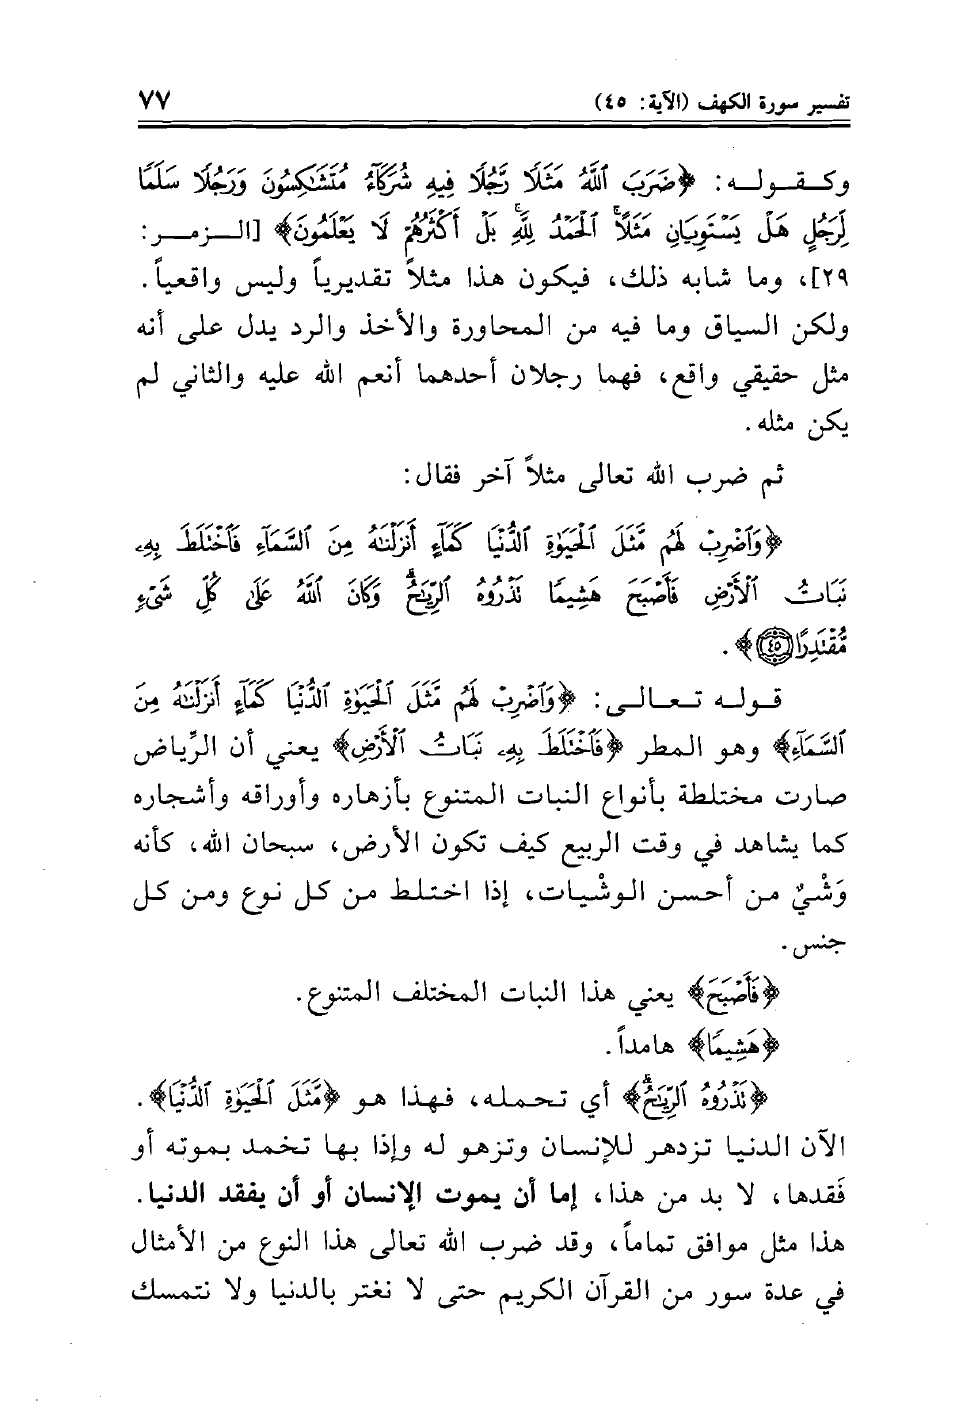 تفسير سورة الكهف (الآية: ٤٥) ٧٧
وكـقـولـه: ﴿ضَرَبَ ٱللَّهُ مَثَلًا رَّجُلًا فِيهِ شُرَكَآءُ مُتَشَٰكِسُونَ وَرَجُلًا سَلَمًا
لِّرَجُلٍ هَلْ يَسْتَوِيَانِ مَثَلًا ۚ ٱلْحَمْدُ لِلَّهِ ۚ بَلْ أَكْثَرُهُمْ لَا يَعْلَمُونَ﴾ [الـزمـر:
٢٩]، وما شابه ذلك، فيكون هذا مثلاً تقديرياً وليس واقعياً.
ولكن السياق وما فيه من المحاورة والأخذ والرد يدل على أنه
مثل حقيقي واقع، فهما رجلان أحدهما أنعم الله عليه والثاني لم
يكن مثله.
ثم ضرب الله تعالى مثلاً آخر فقال:
﴿وَٱضْرِبْ لَهُم مَّثَلَ ٱلْحَيَوٰةِ ٱلدُّنْيَا كَمَآءٍ أَنزَلْنَٰهُ مِنَ ٱلسَّمَآءِ فَٱخْتَلَطَ بِهِۦ
نَبَاتُ ٱلْأَرْضِ فَأَصْبَحَ هَشِيمًا تَذْرُوهُ ٱلرِّيَٰحُ ۗ وَكَانَ ٱللَّهُ عَلَىٰ كُلِّ شَىْءٍ
مُّقْتَدِرًا ٤٥﴾.
قـولـه تـعـالـى: ﴿وَٱضْرِبْ لَهُم مَّثَلَ ٱلْحَيَوٰةِ ٱلدُّنْيَا كَمَآءٍ أَنزَلْنَٰهُ مِنَ
ٱلسَّمَآءِ﴾ وهو المطر ﴿فَٱخْتَلَطَ بِهِۦ نَبَاتُ ٱلْأَرْضِ﴾ يعني أن الرِّياض
صارت مختلطة بأنواع النبات المتنوع بأزهاره وأوراقه وأشجاره
كما يشاهد في وقت الربيع كيف تكون الأرض، سبحان الله، كأنه
وَشْيٌ من أحسن الوشْيات، إذا اختلط من كل نوع ومن كل
جنس.
﴿فَأَصْبَحَ﴾ يعني هذا النبات المختلف المتنوع.
﴿هَشِيمًا﴾ هامداً.
﴿تَذْرُوهُ ٱلرِّيَٰحُ ۗ﴾ أي تحمله، فهذا هو ﴿مَّثَلَ ٱلْحَيَوٰةِ ٱلدُّنْيَا﴾.
الآن الدنيا تزدهر للإنسان وتزهو له وإذا بها تخمد بموته أو
فَقدها، لا بد من هذا، إما أن يموت الإنسان أو أن يفقد الدنيا.
هذا مثل موافق تماماً، وقد ضرب الله تعالى هذا النوع من الأمثال
في عدة سور من القرآن الكريم حتى لا نغتر بالدنيا ولا نتمسك